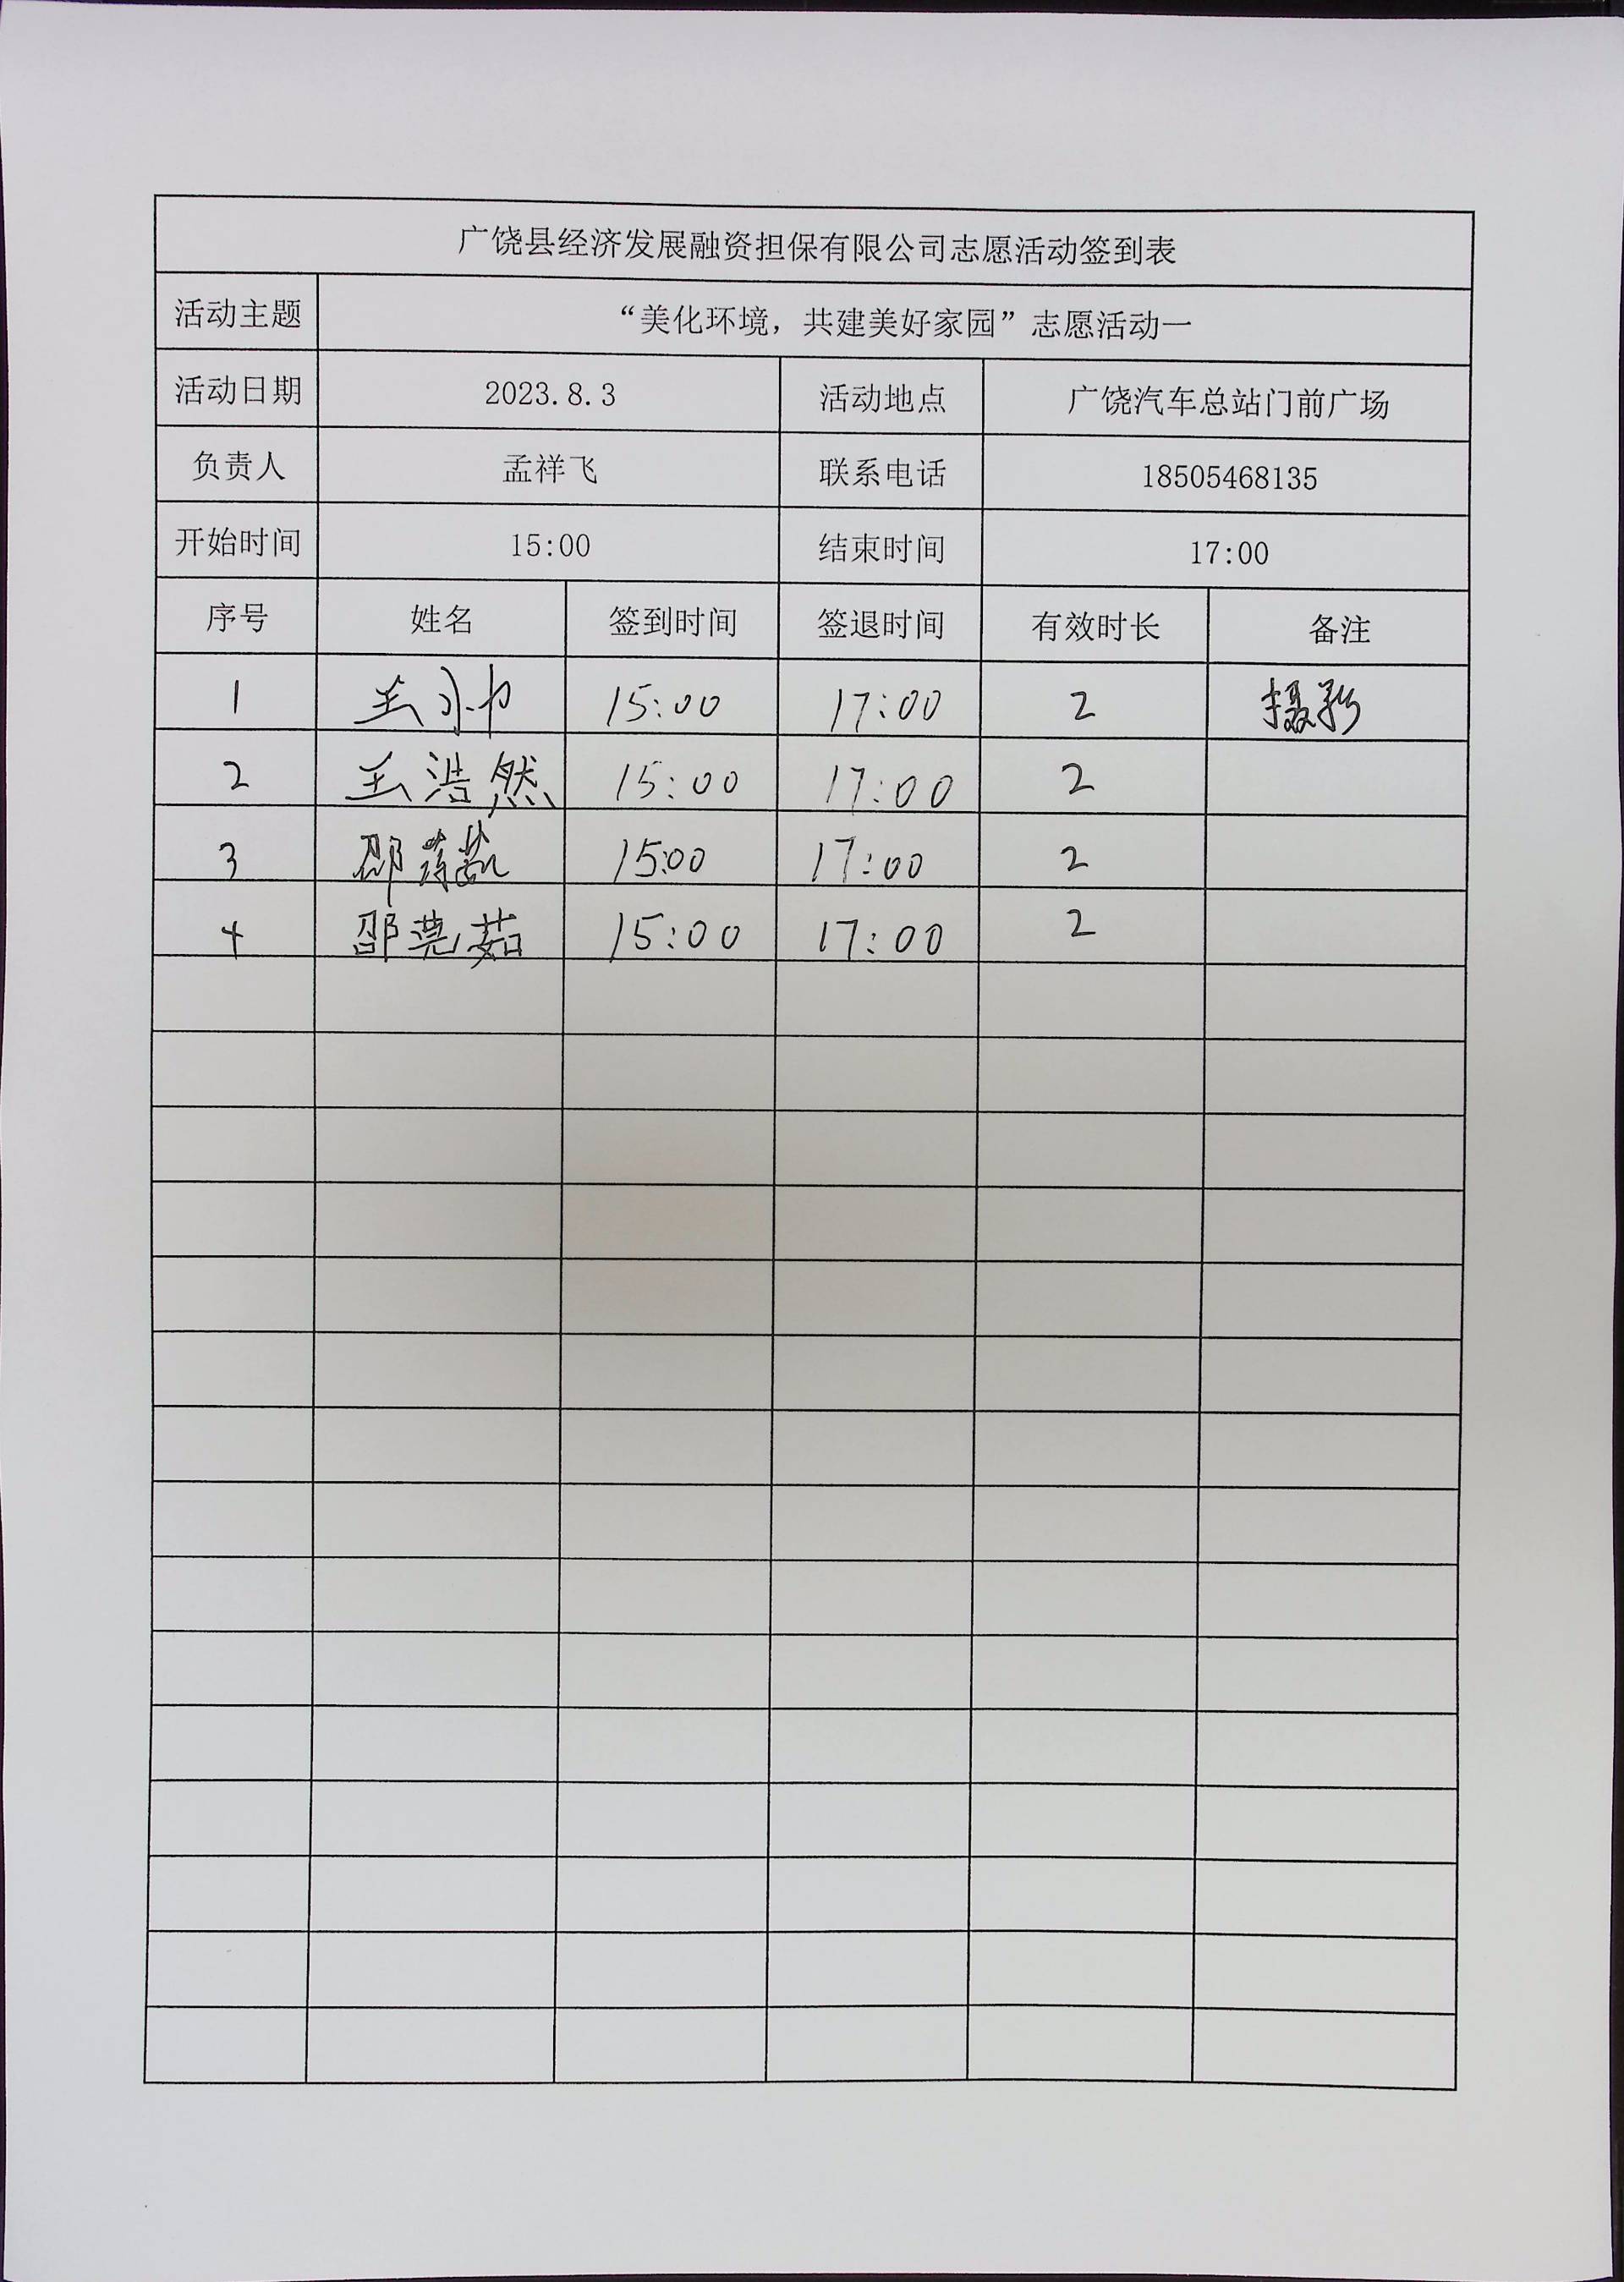 广饶县经济发展融资担保有限公司志愿活动签到表
活动主题 “美化环境，共建美好家园”志愿活动一
活动日期 2023.8.3 活动地点 广饶汽车总站门前广场
负责人 孟祥飞 联系电话 18505468135
开始时间 15:00 结束时间 17:00
序号 姓名 签到时间 签退时间 有效时长 备注
1 王小巾 15:00 17:00 2 摄影
2 王浩然 15:00 17:00 2
3 邵 15:00 17:00 2
4 邵莞茹 15:00 17:00 2